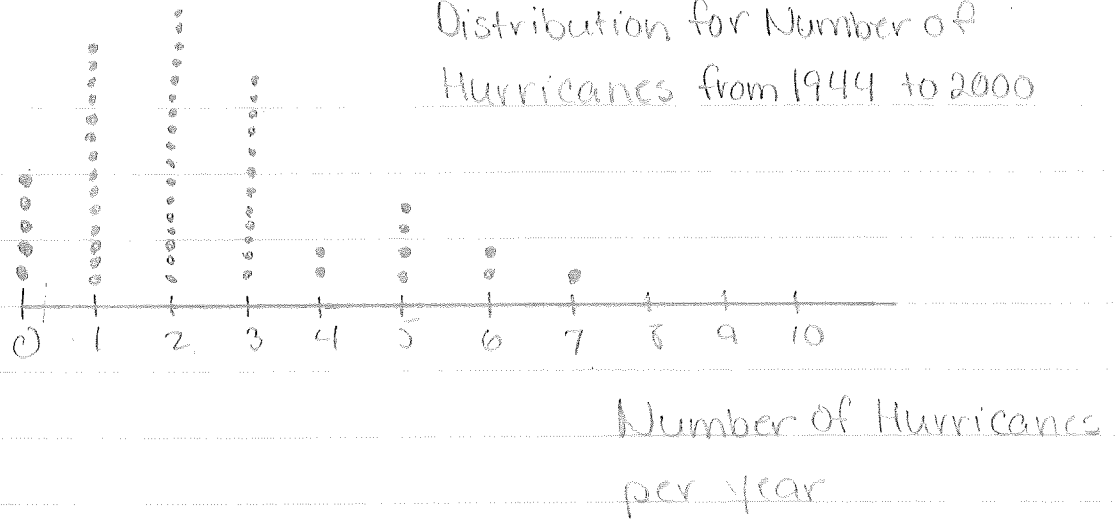 Distribution for Number of
Hurricanes from 1944 to 2000
0 1 2 3 4 5 6 7 8 9 10
Number of Hurricanes
per year